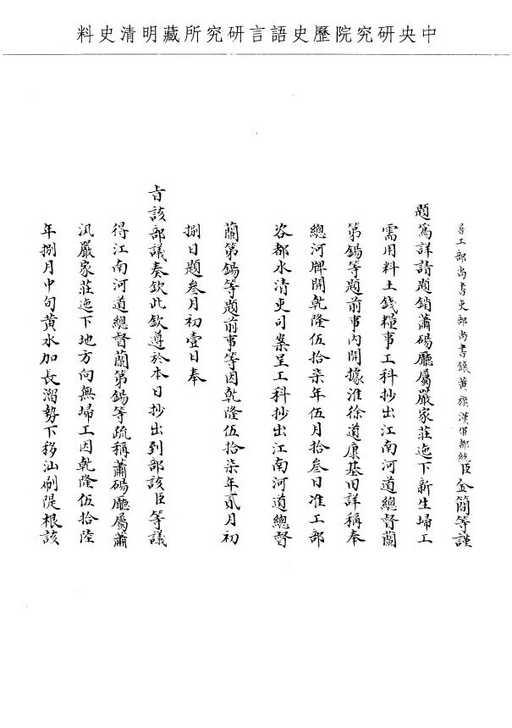 中央研究院歷史語言研究所藏明清史料
工部尚書吏部尚書鑲黃旗漢軍都統臣金簡等謹
題為詳請題銷蕭碭廳屬嚴家莊迤下新生埽工
需用料土錢糧事工科抄出江南河道總督蘭
第錫等題前事內開據淮徐道康基田詳稱奉
總河牌開乾隆伍拾柒年伍月拾叁日准工部
咨都水清吏司案呈工科抄出江南河道總督
蘭第錫等題前事等因乾隆伍拾柒年貳月初
捌日題叁月初壹日奉
旨該部議奏欽此欽遵於本日抄出到部該臣等議
得江南河道總督蘭第錫等疏稱蕭碭廳屬蕭
汛嚴家莊迤下地方向無埽工因乾隆伍拾陸
年捌月中旬黃水加長溜勢下移汕刷隄根該